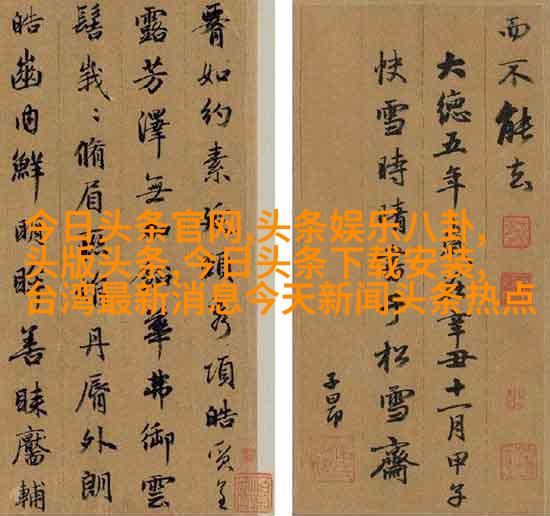 今日头条官网,头条娱乐八卦,
头版头条,今日头条下载安装,
台湾最新消息今天新闻头条热点
而不能去
大德五年在辛丑十一月甲子
快雪時晴于松雪齋
子昂
如約素頸秀項皓質呈
露芳澤無加鉛華弗御雲
髻峩〻脩眉娟丹脣外朗
皓齒内鮮明眸善睞靨輔